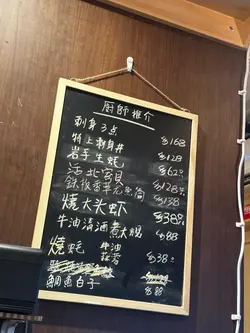 廚師推介
刺身3点 $168
特上刺身丼 $128
岩手生蚝 $62
活北寄貝 $128
鉄板香草
燒大木虾 $38
牛油清酒煮大蜆 $88
燒蚝 牛油 蒜蓉 $38
鯛魚白子 $88